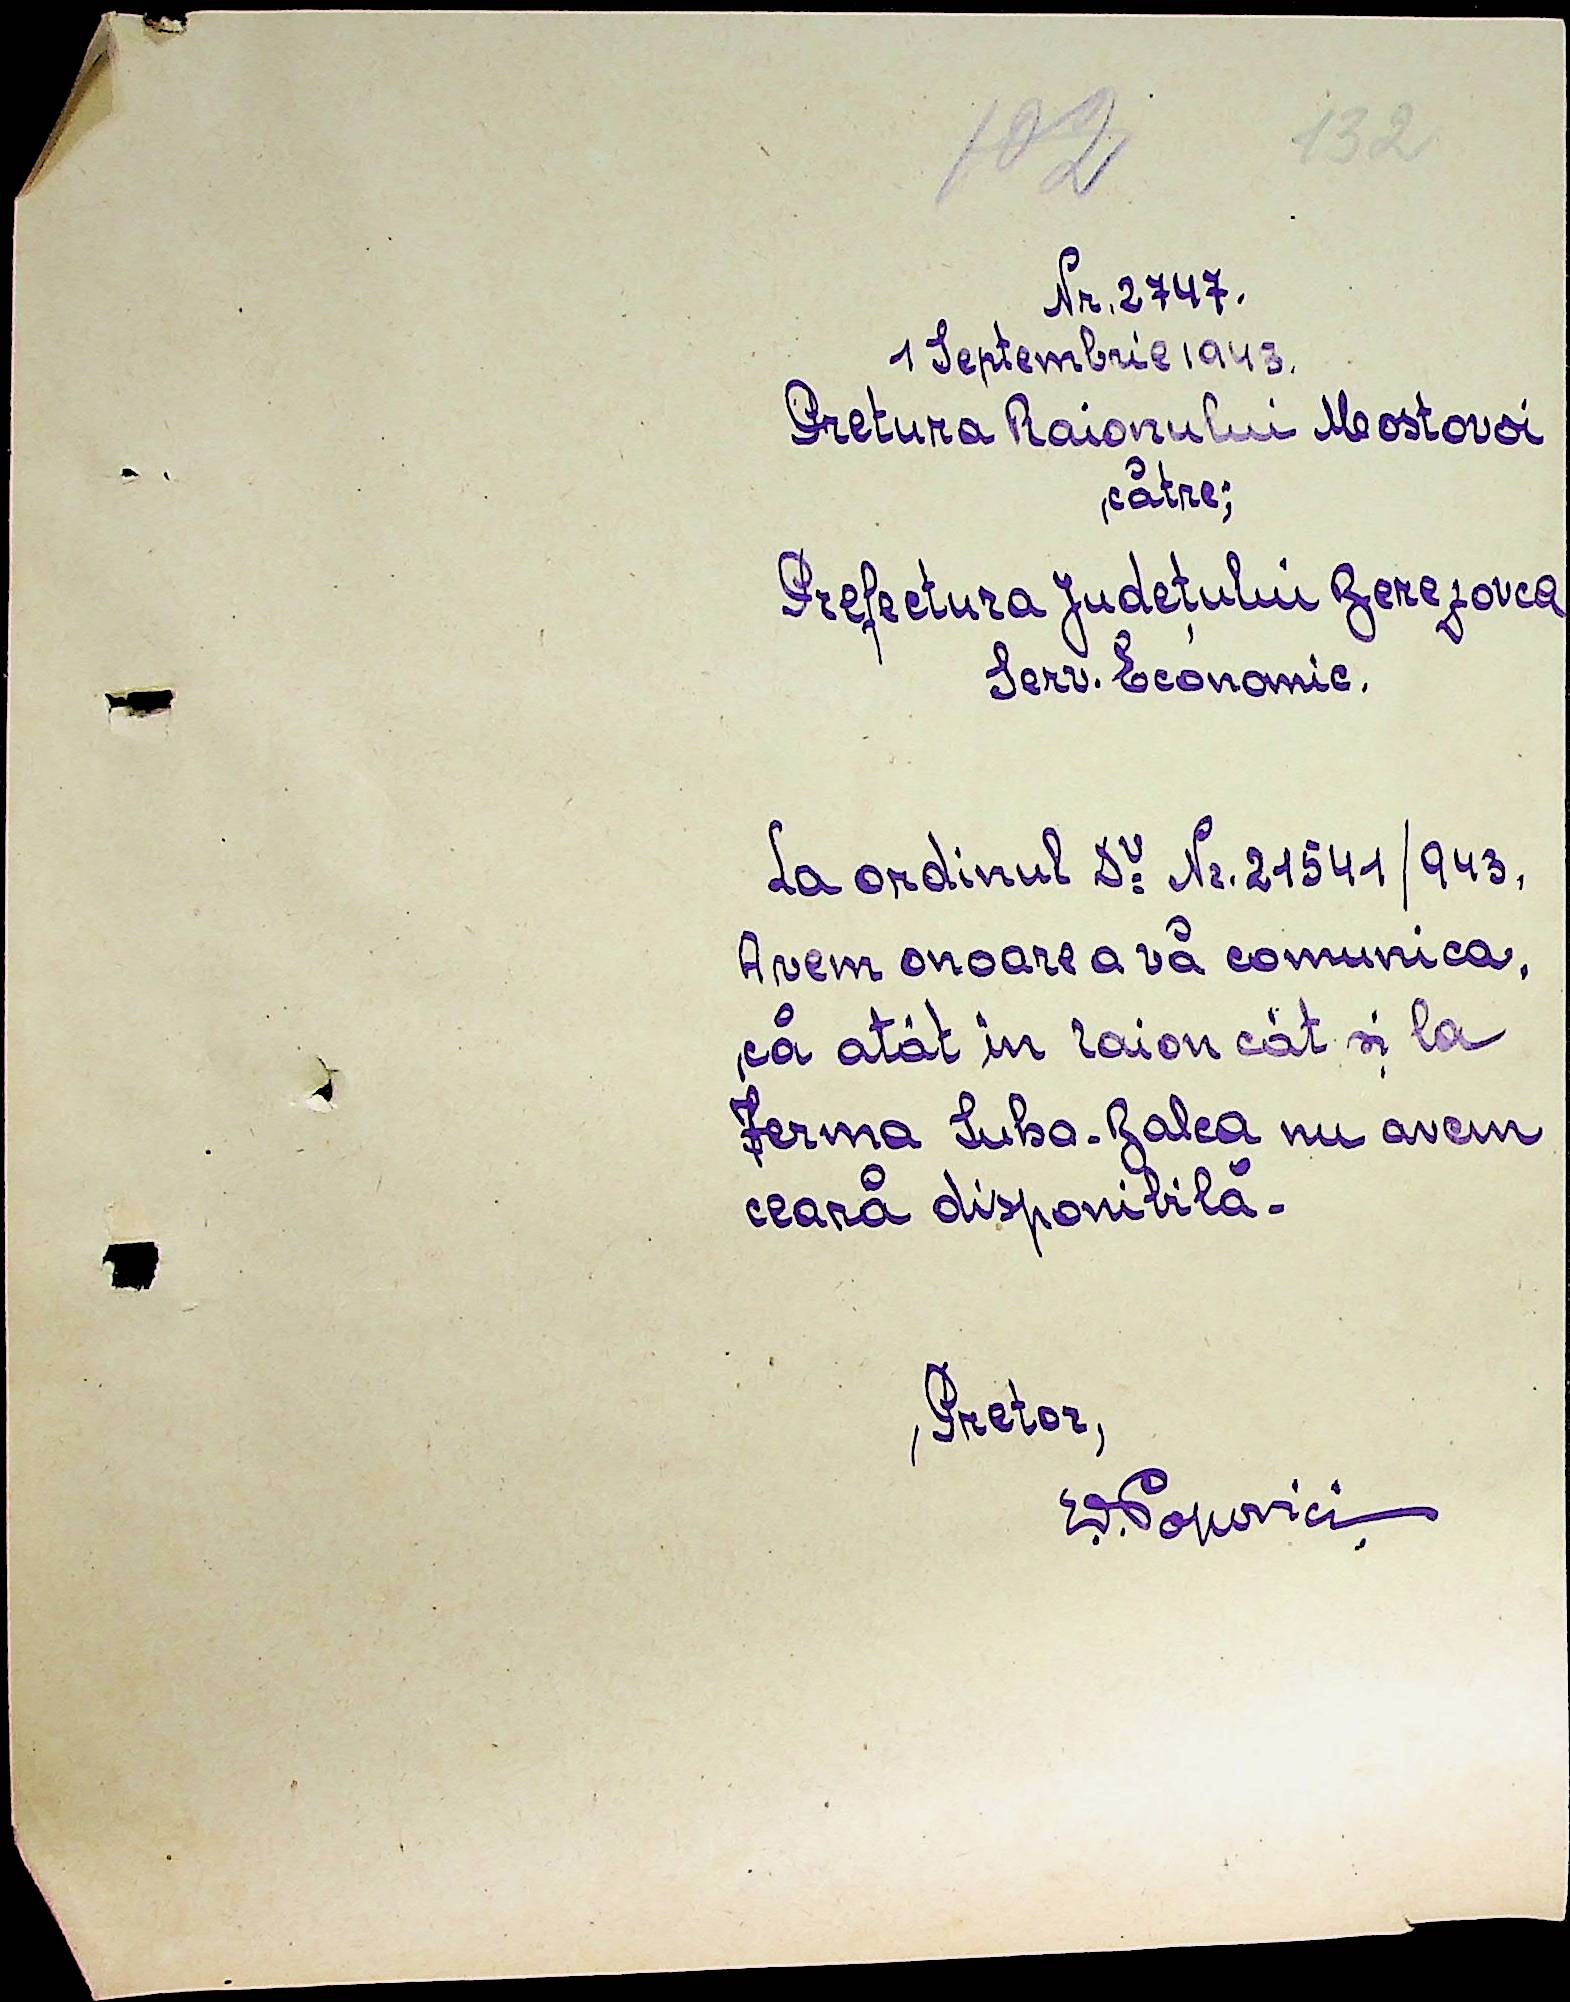 102 132
Nr. 2747.
1 Septembrie 1943.
Pretura Raionului Mostovoi
către;
Prefectura Județului Berezovca
Serv. Economic.
La ordinul Dv: Nr. 21541/943,
Avem onoare a vă comunica,
că atât în raion cât și la
Ferma Suha-Balca nu avem
ceară disponibilă-
Pretor,
Popovici